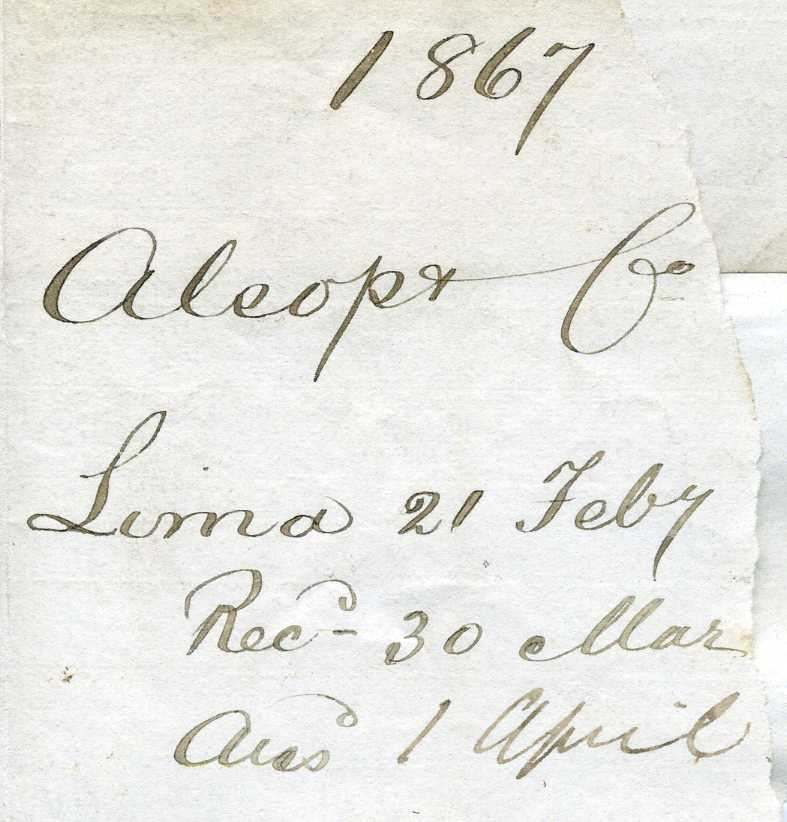 1867
Alsop & Co
Lima 21 Feby
Recd 30 Mar
Ansd 1 April